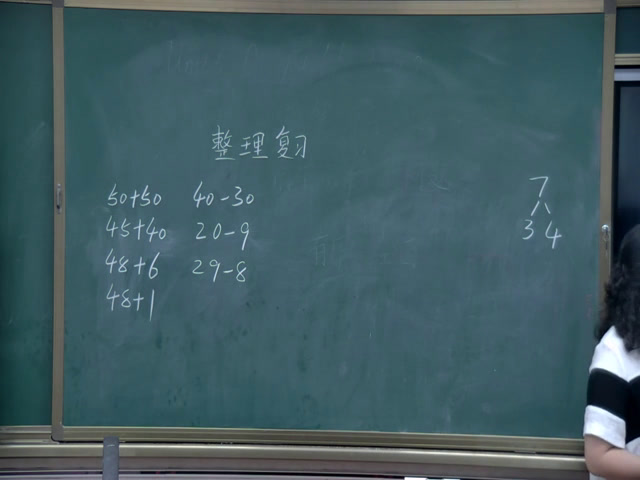 整理复习
50+50 40-30
45+40 20-9
48+6 29-8
48+1
7
3 4